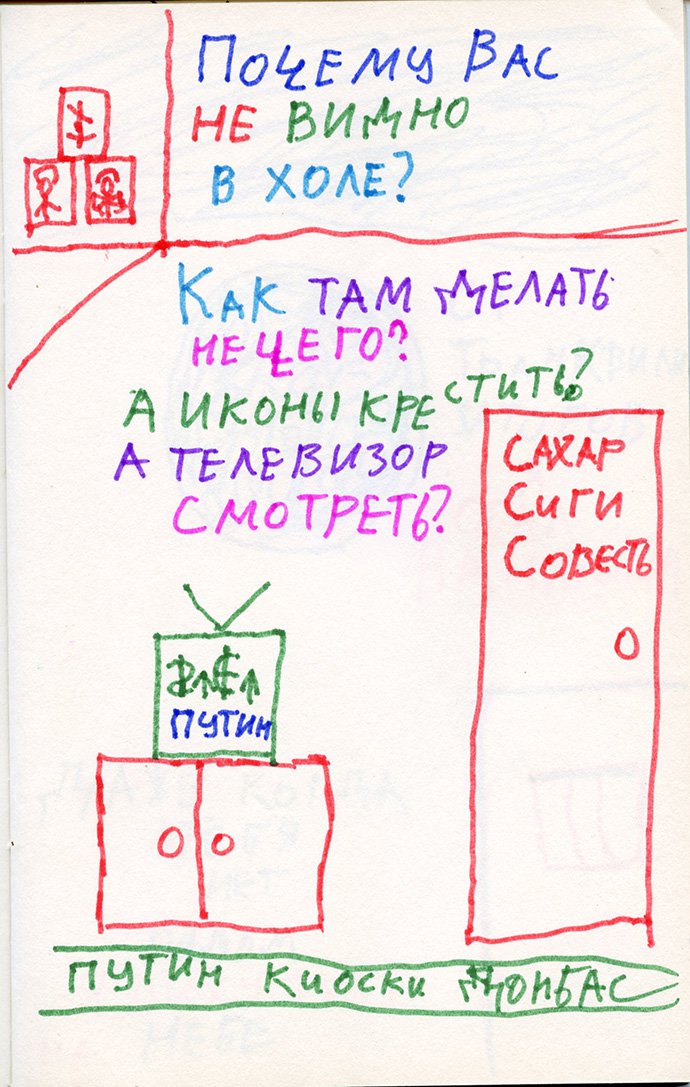 Почему Вас
не видно
в холе?
Как там делать
нечего?
А иконы крестить?
А телевизор
смотреть?
Сахар
Сиги
Совесть
Путин
Путин киоски Донбас